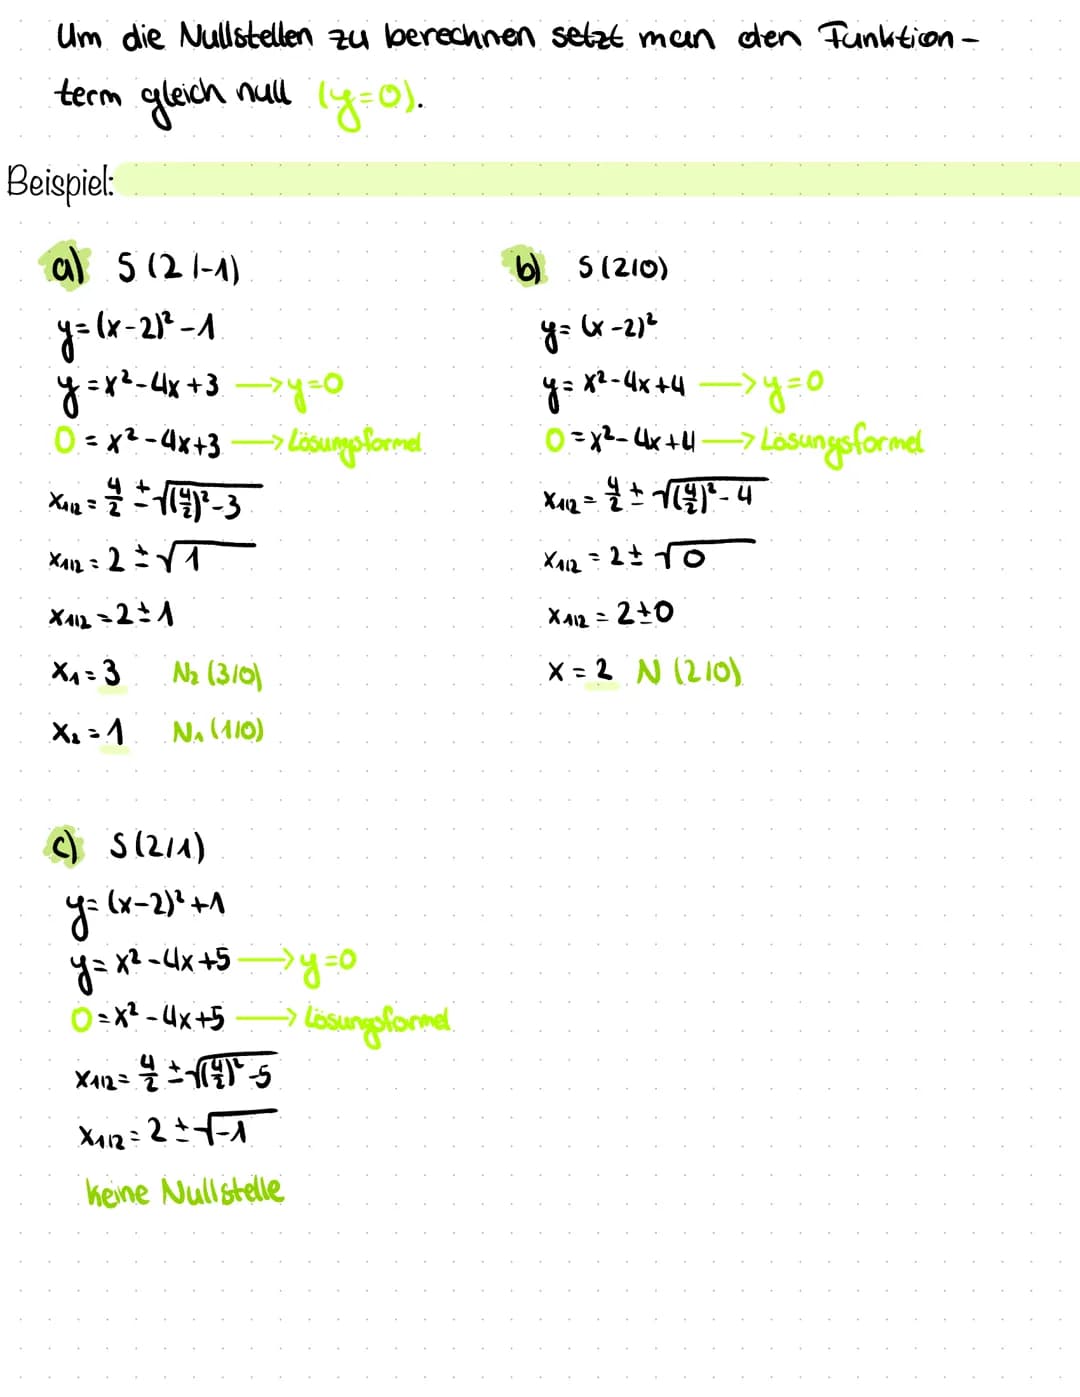 Um die Nullstellen zu berechnen setzt man den Funktion-
term gleich null (y=0).
Beispiel:
a) S(2|-1)
y=(x-2)²-1
y=x²-4x+3 → y=0
0=x²-4x+3 → Lösungsformel
x₁|₂=4/2±√(4/2)²-3
x₁|₂=2±√1
x₁|₂=2±1
x₁=3 N₂(3|0)
x₂=1 N₁(1|0)
b) S(2|0)
y=(x-2)²
y=x²-4x+4 → y=0
0=x²-4x+4 → Lösungsformel
x₁|₂=4/2±√(4/2)²-4
x₁|₂=2±√0
x₁|₂=2±0
x=2 N(2|0)
c) S(2|1)
y=(x-2)²+1
y=x²-4x+5 → y=0
0=x²-4x+5 → Lösungsformel
x₁|₂=4/2±√(4/2)²-5
x₁|₂=2±√-1
keine Nullstelle